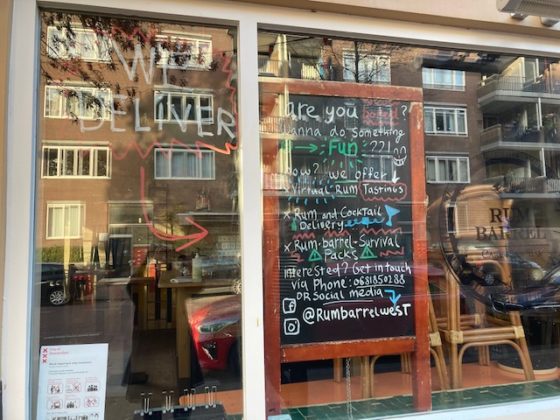 WE
DELIVER
are you bored?
wanna do something
Fun ??!
now? we offer
virtual Rum Tastings
x Rum and Cocktail
Delivery
x Rum-barrel-Survival
Packs
interested? Get in touch
via Phone: 0681850288
OR Social media
@RumbarrelwesT
RUM
BARREL